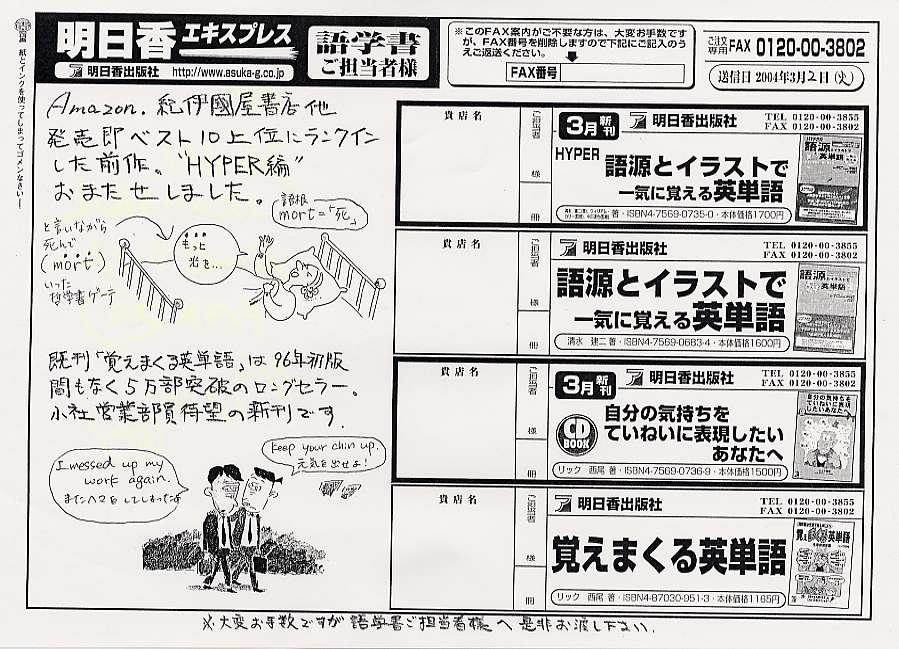 紙とインクを使ってしまってゴメンなさいー
明日香 エキスプレス
明日香出版社 http://www.asuka-g.co.jp
語学書
ご担当者様
※このFAX案内がご不要な方は、大変お手数です
が、FAX番号を削除しますので下記にご記入のう
えご返送ください。
FAX番号
ご注文
専用 FAX 0120-00-3802
送信日 2004年3月2日(火)
Amazon. 紀伊國屋書店他
発売即ベスト10上位にランクイン
した前作。"HYPER編"
おまたせしました。
語根
mort=「死」
もっと
光を…
と言いながら
死んで
(mort)
いった
哲学書ゲーテ
既刊「覚えまくる英単語」は96年初版
間もなく5万部突破のロングセラー。
小社営業部員待望の新刊です.
I messed up my
work again.
またヘマをしてしまったよ
Keep your chin up.
元気を出せよ!
貴店名
ご担当者
様
冊
3月 新刊
明日香出版社
TEL 0120-00-3855
FAX 0120-00-3802
HYPER 語源とイラストで
一気に覚える英単語
著・ISBN4-7569-0735-0・本体価格1700円
貴店名
ご担当者
様
冊
明日香出版社
TEL 0120-00-3855
FAX 0120-00-3802
語源とイラストで
一気に覚える英単語
清水 建二 著・ISBN4-7569-0683-4・本体価格1600円
貴店名
ご担当者
様
冊
3月 新刊
明日香出版社
TEL 0120-00-3855
FAX 0120-00-3802
CD
BOOK
自分の気持ちを
ていねいに表現したい
あなたへ
リック 西尾 著・ISBN4-7569-0736-9・本体価格1500円
貴店名
ご担当者
様
冊
明日香出版社
TEL 0120-00-3855
FAX 0120-00-3802
覚えまくる英単語
リック 西尾 著・ISBN4-87030-951-3・本体価格1165円
※大変お手数ですが語学書ご担当者様へ是非お渡し下さい.